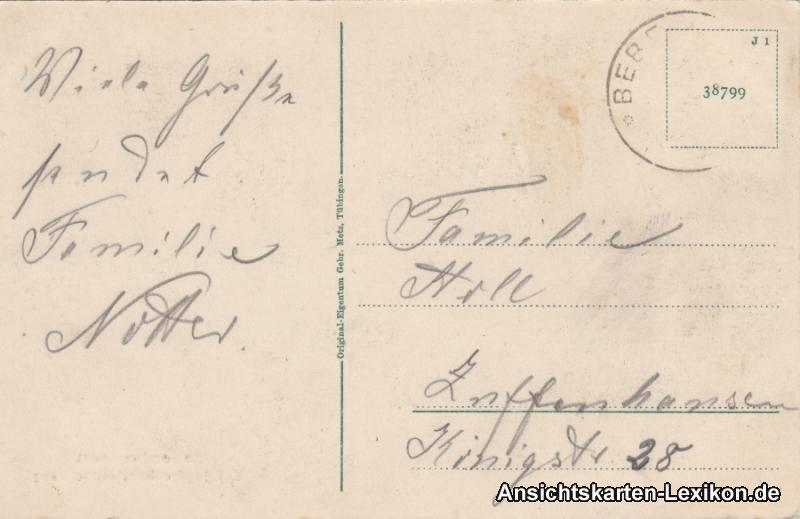 Viele Grüße
sendet
Familie
Notter.
Original-Eigentum Gebr. Metz, Tübingen.
BEBE
J 1
38799
Familie
Holl
Zuffenhausen
Königstr. 28
Ansichtskarten-Lexikon.de